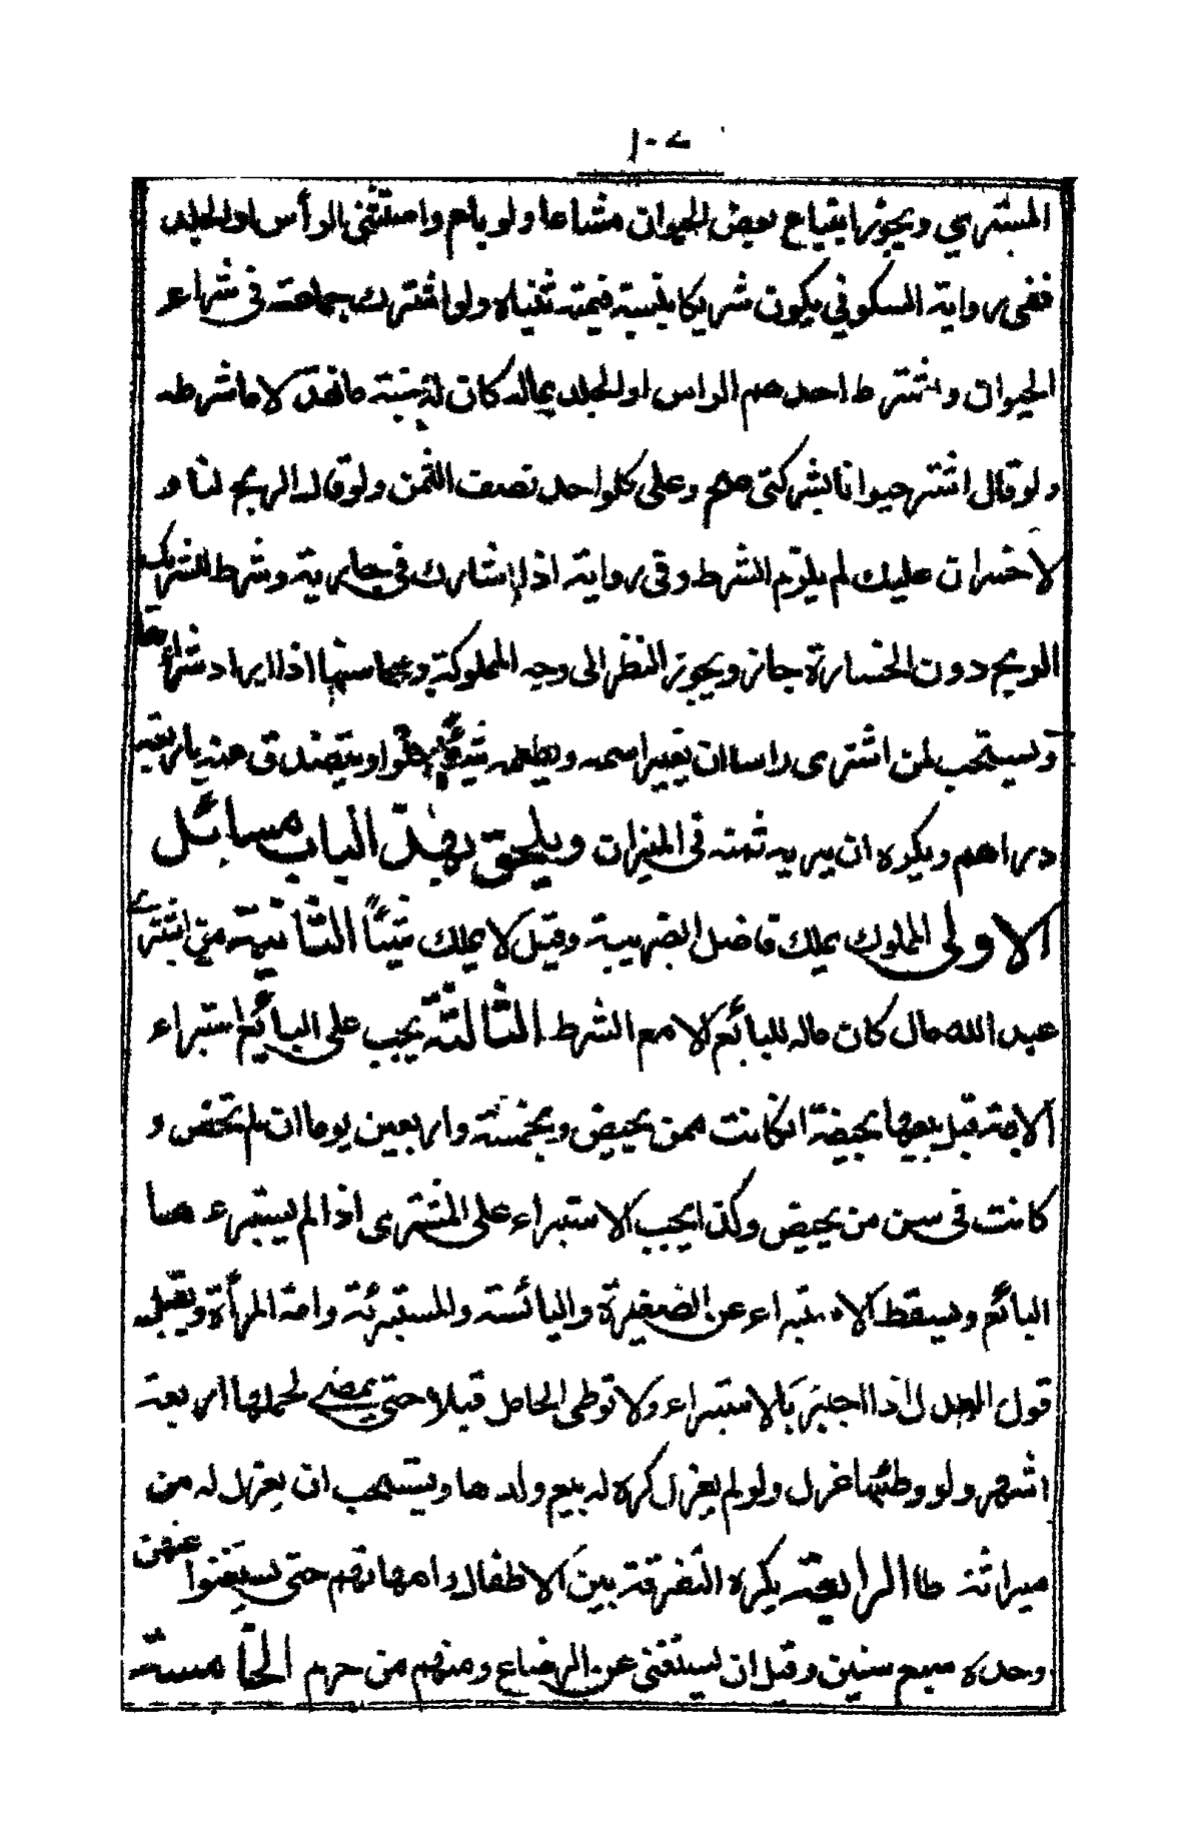 ١٠٧
المشتري ويجوز ابتياع بعض الحيوان مشاعا ولو باع واستثنى الرأس او الجلد
ففي رواية السكوني يكون شريكا بنسبة قيمة ثنياه ولو اشترك جماعة في شراء
الحيوان واشترط احدهم الراس او الجلد بماله كان له بنسبة ما نقد لا ما شرطه
ولو قال اشتر حيوانا بشركتي صح وعلى كل واحد نصف الثمن ولو قال الربح لنا و
لا خسران عليك لم يلزم الشرط وفي رواية اذا شارك في جارية وشرط للشريك
الربح دون الخسارة جاز ويجوز النظر الى وجه المملوكة ومحاسنها اذا اراد شراءها
ويستحب لمن اشترى راسا ان يغير اسمه ويطعمه شيئا حلوا ويتصدق عنه باربعة
دراهم ويكره ان يريه ثمنه في الميزان ويلحق بهذا الباب مسائل
الاولى المملوك يملك فاضل الضريبة وقيل لا يملك شيئا الثانية من اشترى
عبدا له مال كان ماله للبائع الا مع الشرط الثالثة يجب على البائع استبراء
الامة قبل بيعها بحيضة ان كانت ممن يحيض وبخمسة واربعين يوما ان لم تحض و
كانت في سن من يحيض وكذا يجب الاستبراء على المشترى اذا لم يستبرءها
البائع ويسقط الاستبراء عن الصغيرة واليائسة والمستبرئة وامة المرأة ويقبل
قول العدل اذا اخبر بالاستبراء ولا توطى الحامل قبلا حتى يمضي لحملها اربعة
اشهر ولو وطئها عزل ولو لم يعزل كره له بيع ولدها ويستحب ان يعزل له من
ميراثه طا الرابعة يكره التفرقة بين الاطفال وامهاتهم حتى يستغنوا عنهن
وحده سبع سنين وقيل ان يستغنى عن الرضاع ومنهم من حرم الخامسة